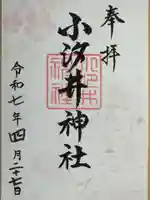 奉拝
小汐井神社
令和七年四月二十七日